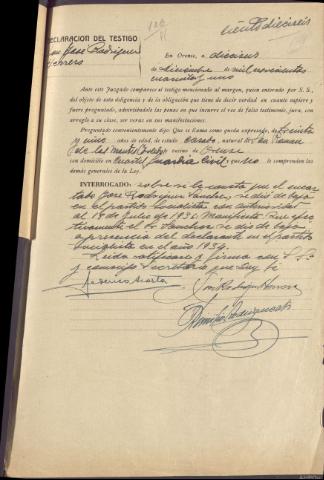 ciento dieciseis
DECLARACION DEL TESTIGO
Jose Rodriguez
Herrero
En Orense, a dieciseis
de diciembre de mil novecientos
cuarenta y uno
Ante este Juzgado comparece el testigo mencionado al margen, quien enterado por S. S.,
del objeto de esta diligencia y de la obligación que tiene de decir verdad en cuanto supiere y
fuere preguntado, advirtiéndole las penas en que incurre el reo de falso testimonio, jura, con
arreglo a su clase, ser veraz en sus manifestaciones.
Preguntado convenientemente dijo: Que se llama como queda expresado, de treinta
y uno años de edad, de estado casado natural de San
de vecino de Orense
con domicilio en Cuartel Guardia Civil que no le comprenden las
demás generales de la Ley.
INTERROGADO: sobre si le consta que el encar
tado Jose Rodriguez Sanchez, se dió de baja
en el partido Socialista con anterioridad
al 18 de Julio de 1936. Manifiesta: Que efec
tivamente el Sr Sanchez se dió de baja
a presencia del declarante en el partido
Socialista en el año 1934.
Leida ratifica y firma con S. Sª
y conmigo Secretario que doy fe
Jose Rodriguez Herrero